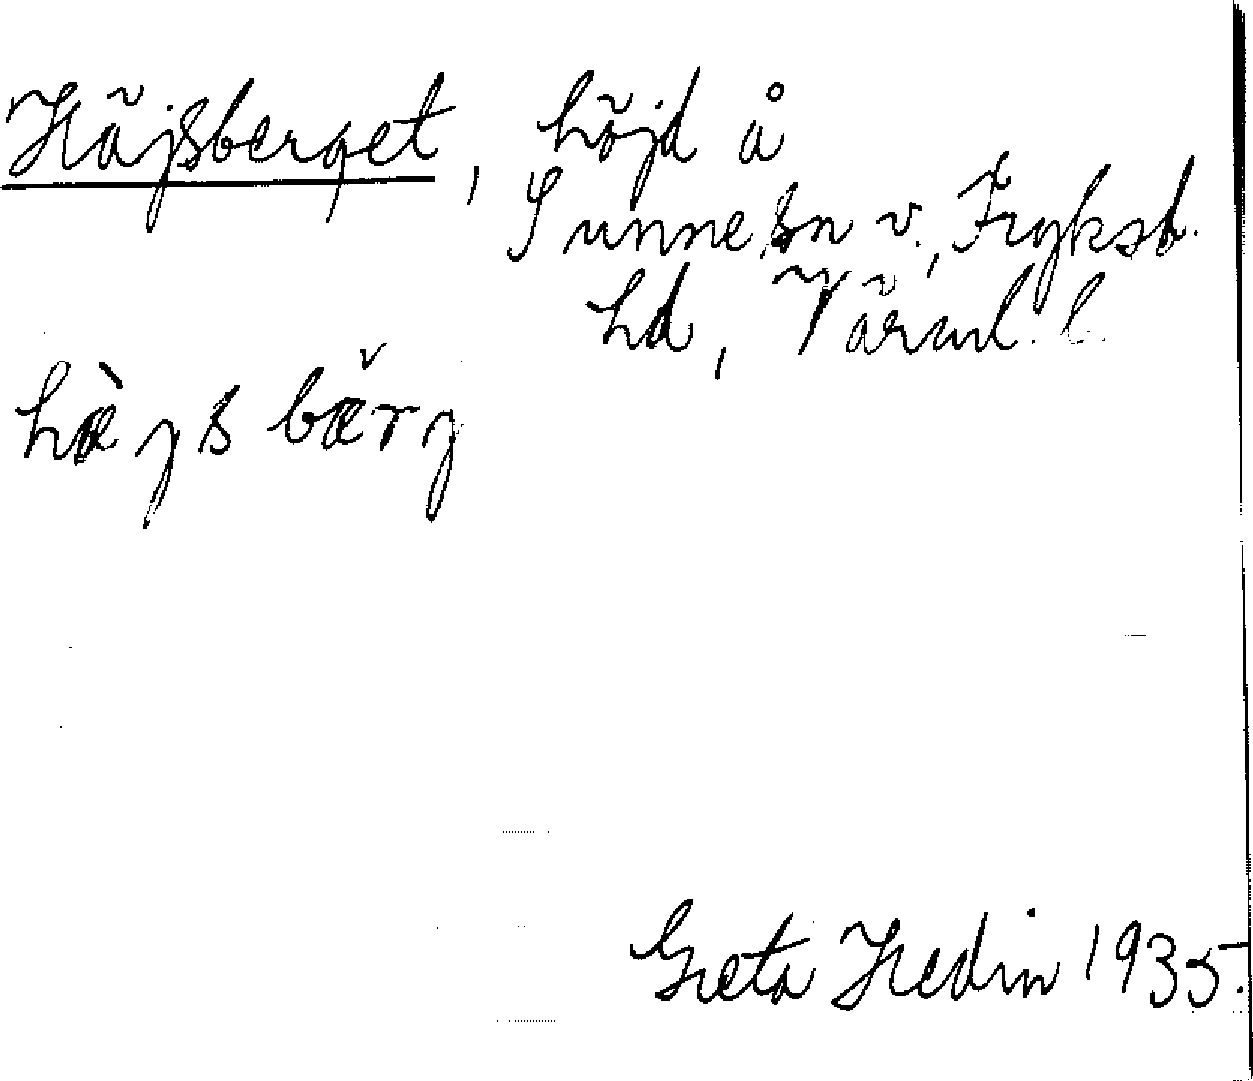 Häjsberget, höjd å
Sunne sn v., Fryksd.
hd, Värml. l.
hæ̀jsbæ̌rj
Greta Hedin 1935.